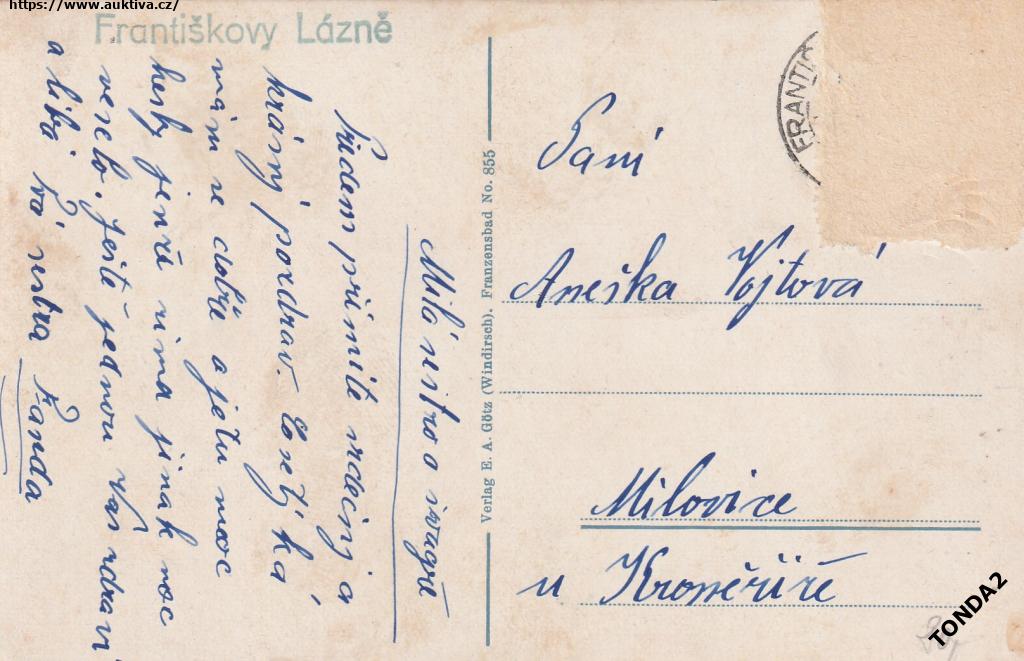 https://www.auktiva.cz/
Františkovy Lázně
Milá sestro a švagře
Předem přimite srdečný a
krásný pozdrav.
mám se dobře a je tu moc
hesky jenže zima jinak moc
veselo. Ještě jednou Vás zdraví
a líbá tvá sestra Fanda
Verlag E. A. Götz (Windirsch). Franzensbad No. 855
FRANTI
Paní
Aneška Vojtová
Milovice
u Kroměříže
TONDA2